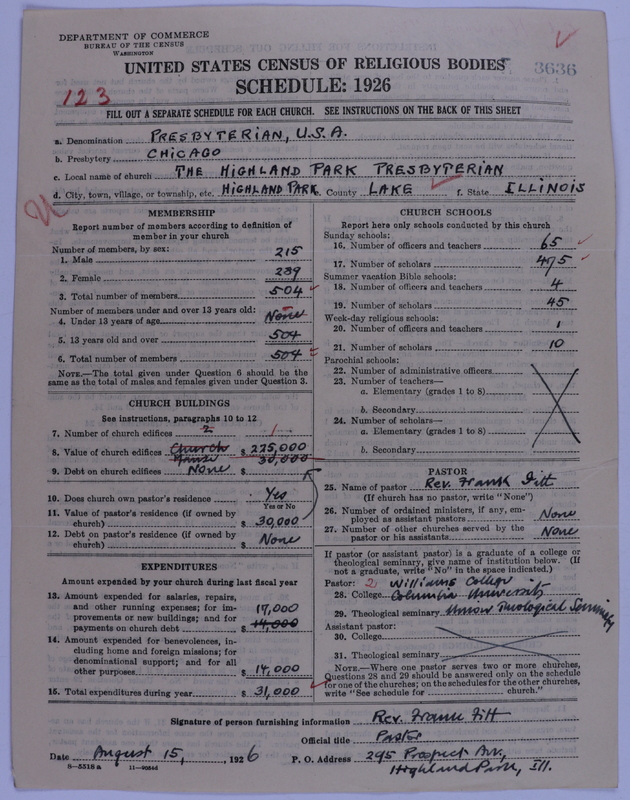 DEPARTMENT OF COMMERCE
BUREAU OF THE CENSUS
WASHINGTON
UNITED STATES CENSUS OF RELIGIOUS BODIES
3636
SCHEDULE: 1926
123
FILL OUT A SEPARATE SCHEDULE FOR EACH CHURCH. SEE INSTRUCTIONS ON THE BACK OF THIS SHEET
a. Denomination PRESBYTERIAN, U.S.A.
b. Presbytery CHICAGO
c. Local name of church THE HIGHLAND PARK PRESBYTERIAN
d. City, town, village, or township, etc. HIGHLAND PARK e. County LAKE f. State ILLINOIS
MEMBERSHIP
Report number of members according to definition of
member in your church
Number of members, by sex:
1. Male 215
2. Female 289
3. Total number of members 504
Number of members under and over 13 years old:
4. Under 13 years of age None
5. 13 years old and over 504
6. Total number of members 504
NOTE.—The total given under Question 6 should be
same as the total of males and females given under Question 3.
CHURCH BUILDINGS
See instructions, paragraphs 10 to 12
7. Number of church edifices 2 1
8. Value of church edifices Church $ 275,000
Manse 30,000
9. Debt on church edifices None $
10. Does church own pastor's residence Yes
Yes or No
11. Value of pastor's residence (if owned by
church) $ 30,000
12. Debt on pastor's residence (if owned by
church) $ None
EXPENDITURES
Amount expended by your church during last fiscal year
13. Amount expended for salaries, repairs,
and other running expenses; for im-
provements or new buildings; and for 17,000
payments on church debt $ 14,000
14. Amount expended for benevolences, in-
cluding home and foreign missions; for
denominational support; and for all
other purposes $ 14,000
15. Total expenditures during year $ 31,000
CHURCH SCHOOLS
Report here only schools conducted by this church
Sunday schools:
16. Number of officers and teachers 65
17. Number of scholars 475
Summer vacation Bible schools:
18. Number of officers and teachers 4
19. Number of scholars 45
Week-day religious schools:
20. Number of officers and teachers 1
21. Number of scholars 10
Parochial schools:
22. Number of administrative officers
23. Number of teachers—
a. Elementary (grades 1 to 8)
b. Secondary
24. Number of scholars—
a. Elementary (grades 1 to 8)
b. Secondary
PASTOR
25. Name of pastor Rev. Frank Fitt
(If church has no pastor, write "None")
26. Number of ordained ministers, if any, em-
ployed as assistant pastors None
27. Number of other churches served by the
pastor or his assistants None
If pastor (or assistant pastor) is a graduate of a college or
theological seminary, give name of institution below. (If
not a graduate, write "No" in the space indicated.)
Pastor: 2 Williams College
28. College Columbia University
29. Theological seminary Union Theological Seminary
Assistant pastor:
30. College
31. Theological seminary
NOTE.—Where one pastor serves two or more churches,
Questions 28 and 29 should be answered only on the schedule
for one of the churches; on the schedules for the other churches,
write "See schedule for church."
Signature of person furnishing information Rev. Frank Fitt
Official title Pastor
Date August 15, 1926 P. O. Address 295 Prospect Av.,
8—5518 a Highland Park, Ill.